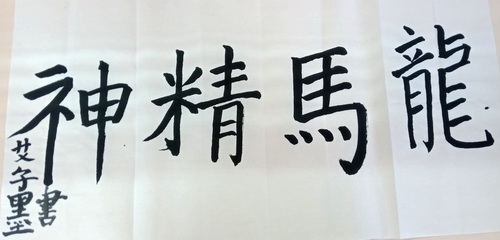 龍馬精神
艾子墨書